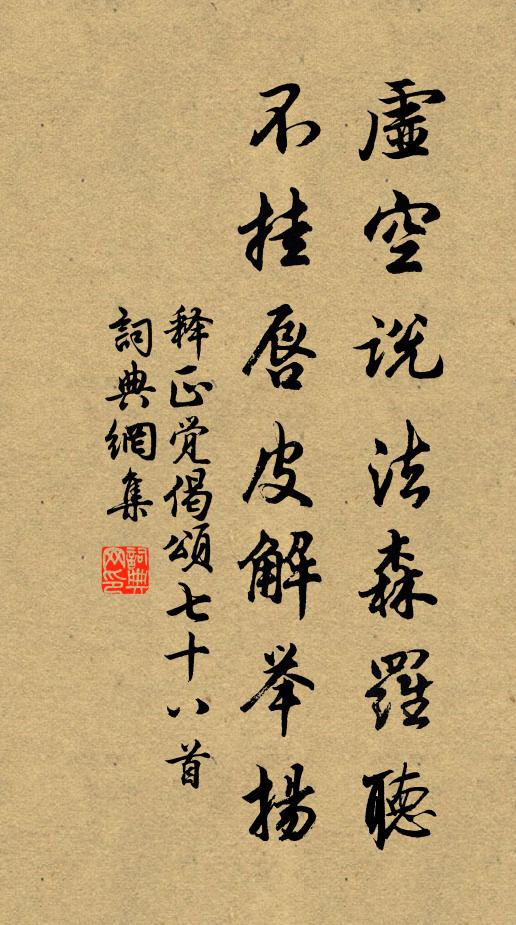 虛空説法森羅聽
不挂唇皮解举揚
释正觉偈頌七十八首
詞典網集
詞典网印